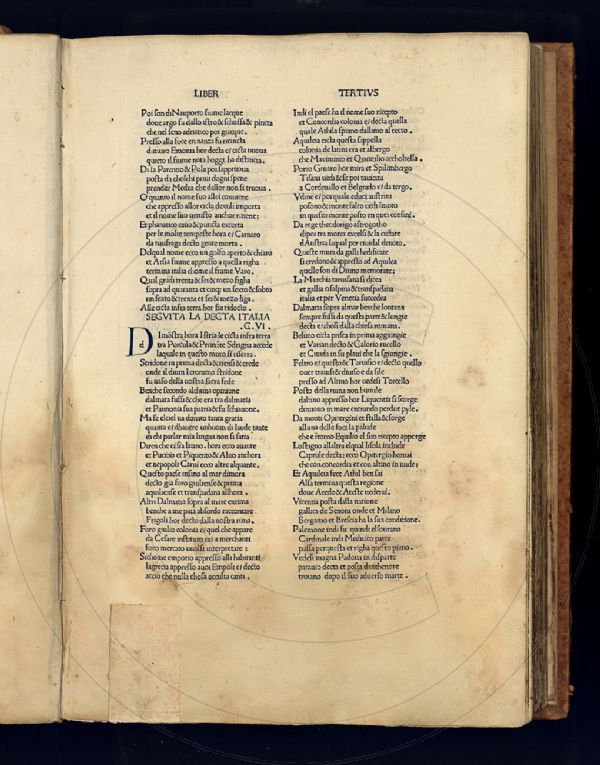 LIBER
Poi son di Nauporto fiume lacque
doue argo fu dallo istro & schossa & pincta
che nel seno adriatico poi giacque.
Presso alla foce en narra fu recincta
di muro Emonia hor decta e/ cicta nuoua
queto il fiume nota hoggi ha distincta.
Di la Parentio & Pola poi sapprouua
posta da cholchi priui dogni spene
prender Medea che dallor non si truoua.
O quanto il nome suo allei conuiene
che appresso allor cicta dexuli importa
et il nome suo uenusto anchor ritiene:
Et phanatico euui & puncta excorta
per le molte tempeste hora e/ Carnaro
da naufraga decto gente morta.
Delqual nome ecco un golfo aperto & chiaro
et Arsia fiume appresso a quella righa
termina italia chome il fiume Varo.
Qual gradi trenta & sei & mezo figha
sopra ad quaranta et cinq; un sexto & sobto
un sexto & trenta et sei & mezo ligha.
Alle cicta infra terra hor fia ridocto.
SEGVITA LA DECTA ITALIA
.C.VI.
D Imostra hora Istria le cicta infra terra
tra Portula & Primonte Sdrigna accede
laquale in questo muro si inserra.
Stridone in prima decta & tiensi & crede
onde il diuin Ieronimo Stridone
fu uaso della nostra sacra fede
Benche secondo alchuna opinione
dalmata fussi & che era tra dalmatia
et Pannonia sua patria & fu schiauone.
Ma se elciel ua donato tanta gratia
quanta e/ dhauere unhuom di laude tante
di chi parlar mia lingua non si satia
Diren che ei sia Istriano. hora ecco auante
et Pucino et Piquento & Aluo anchora
et nepopoli Carni ecco altre alquante.
Questo paese insino al mar dimora
decto gia foro giuliense & prima
aquiliense et transpadana allhora.
Altri Dalmatia sopra al mare extima
benche a me paia absordo raccontare
Frigoli hor decto dalla nostra rima.
Foro giulio colonia e/ quel che appare
da Cesare instituto fui a merchanti
foro mercato uuolsi interpretare:
Sichome emporio appresso alla habitanti
lagrecia appresso anoi Empoli e/ decto
accio che nulla chosa occulta canti.
TERTIVS
Indi el paese ha il nome suo ricepto
et Concordia colonia e/ decta quella
quale Athila spiano dallimo al tecto.
Aquileia ecta questa sappella
colonia de latini era et albergo
che Maximino et Quintilio accholtella.
Porto Gruaro hor mira et Spilimbergo
Tisana uedi & se poi tauicini
a Cordeuillo et Belgrado e/ da tergo.
Vdine e/ por quale educa austrini
posono & monte falco uedi imoto
in questo monte posto en quei confini.
Da rege theodorigo astrogotho
dipoi tra monti excelsi & la exclare
dAustria laqual per ciuidal denoto.
Queste mura da galli hedificare
si credono & appresso ad Aquilea
quelle son di Diuino memorate:
La Marchia tariusana si dicea
et gallia cisalpina & transpadana
italia et per Venetia succedea
Dalmatia sopra almar benche lontana
sempre fussi da questa parte & lungie
decta e/ chosi dalla chiesa romana.
Beluno cicta prisca in prima aggiungie
et Variano decto & Calorio rucello
et Ciuita in su plaui che la sgiungie.
Feltro e/ questo & Taruisio e/ decto quello
ouer trauisi & diuiso e da sile
presso ad Altino hor uedesi Torcello
Posto della ruina non humile
daltino appresso hor Liquentia si scorge
dinuouo in mare entrando perdue pyle.
Da monti Opitergini et stalla & sorge
alluna delle foci la palude
che e storno Equilio el suo ricepto apperge
Lostagno allaltra elqual lisola include
Caprule decta: ecco Opitergio homai
che con concordia et con altino in nude:
Et Aquileia fece Athil ben sai
Alsa termina questa regione
doue Acedo & Ateste uedrai.
Vicentia posta dalla natione
gallica de Senona onde et Milano
Bergamo et Brescia ha la sua conditione.
Palemone indi fu quindi el sourano
Cardinale indi Meduaco parte
passa per questa et righa questo piano.
Vedesi magna Padoua in disparte
patauio decta et posta danthenore
troiano dopo il suo aduerso marte.